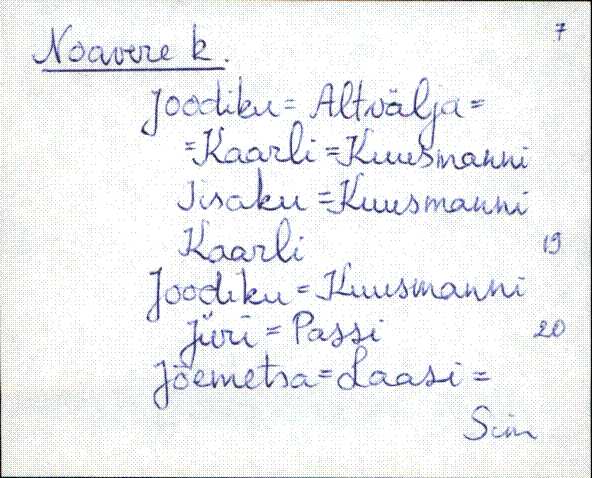 7
Noavere k.
Joodiku = Altvälja =
= Kaarli = Kuusmanni
Iisaku = Kuusmanni
Kaarli 19
Joodiku = Kuusmanni
Jüri = Passi 20
Jõemetsa = Laasi =